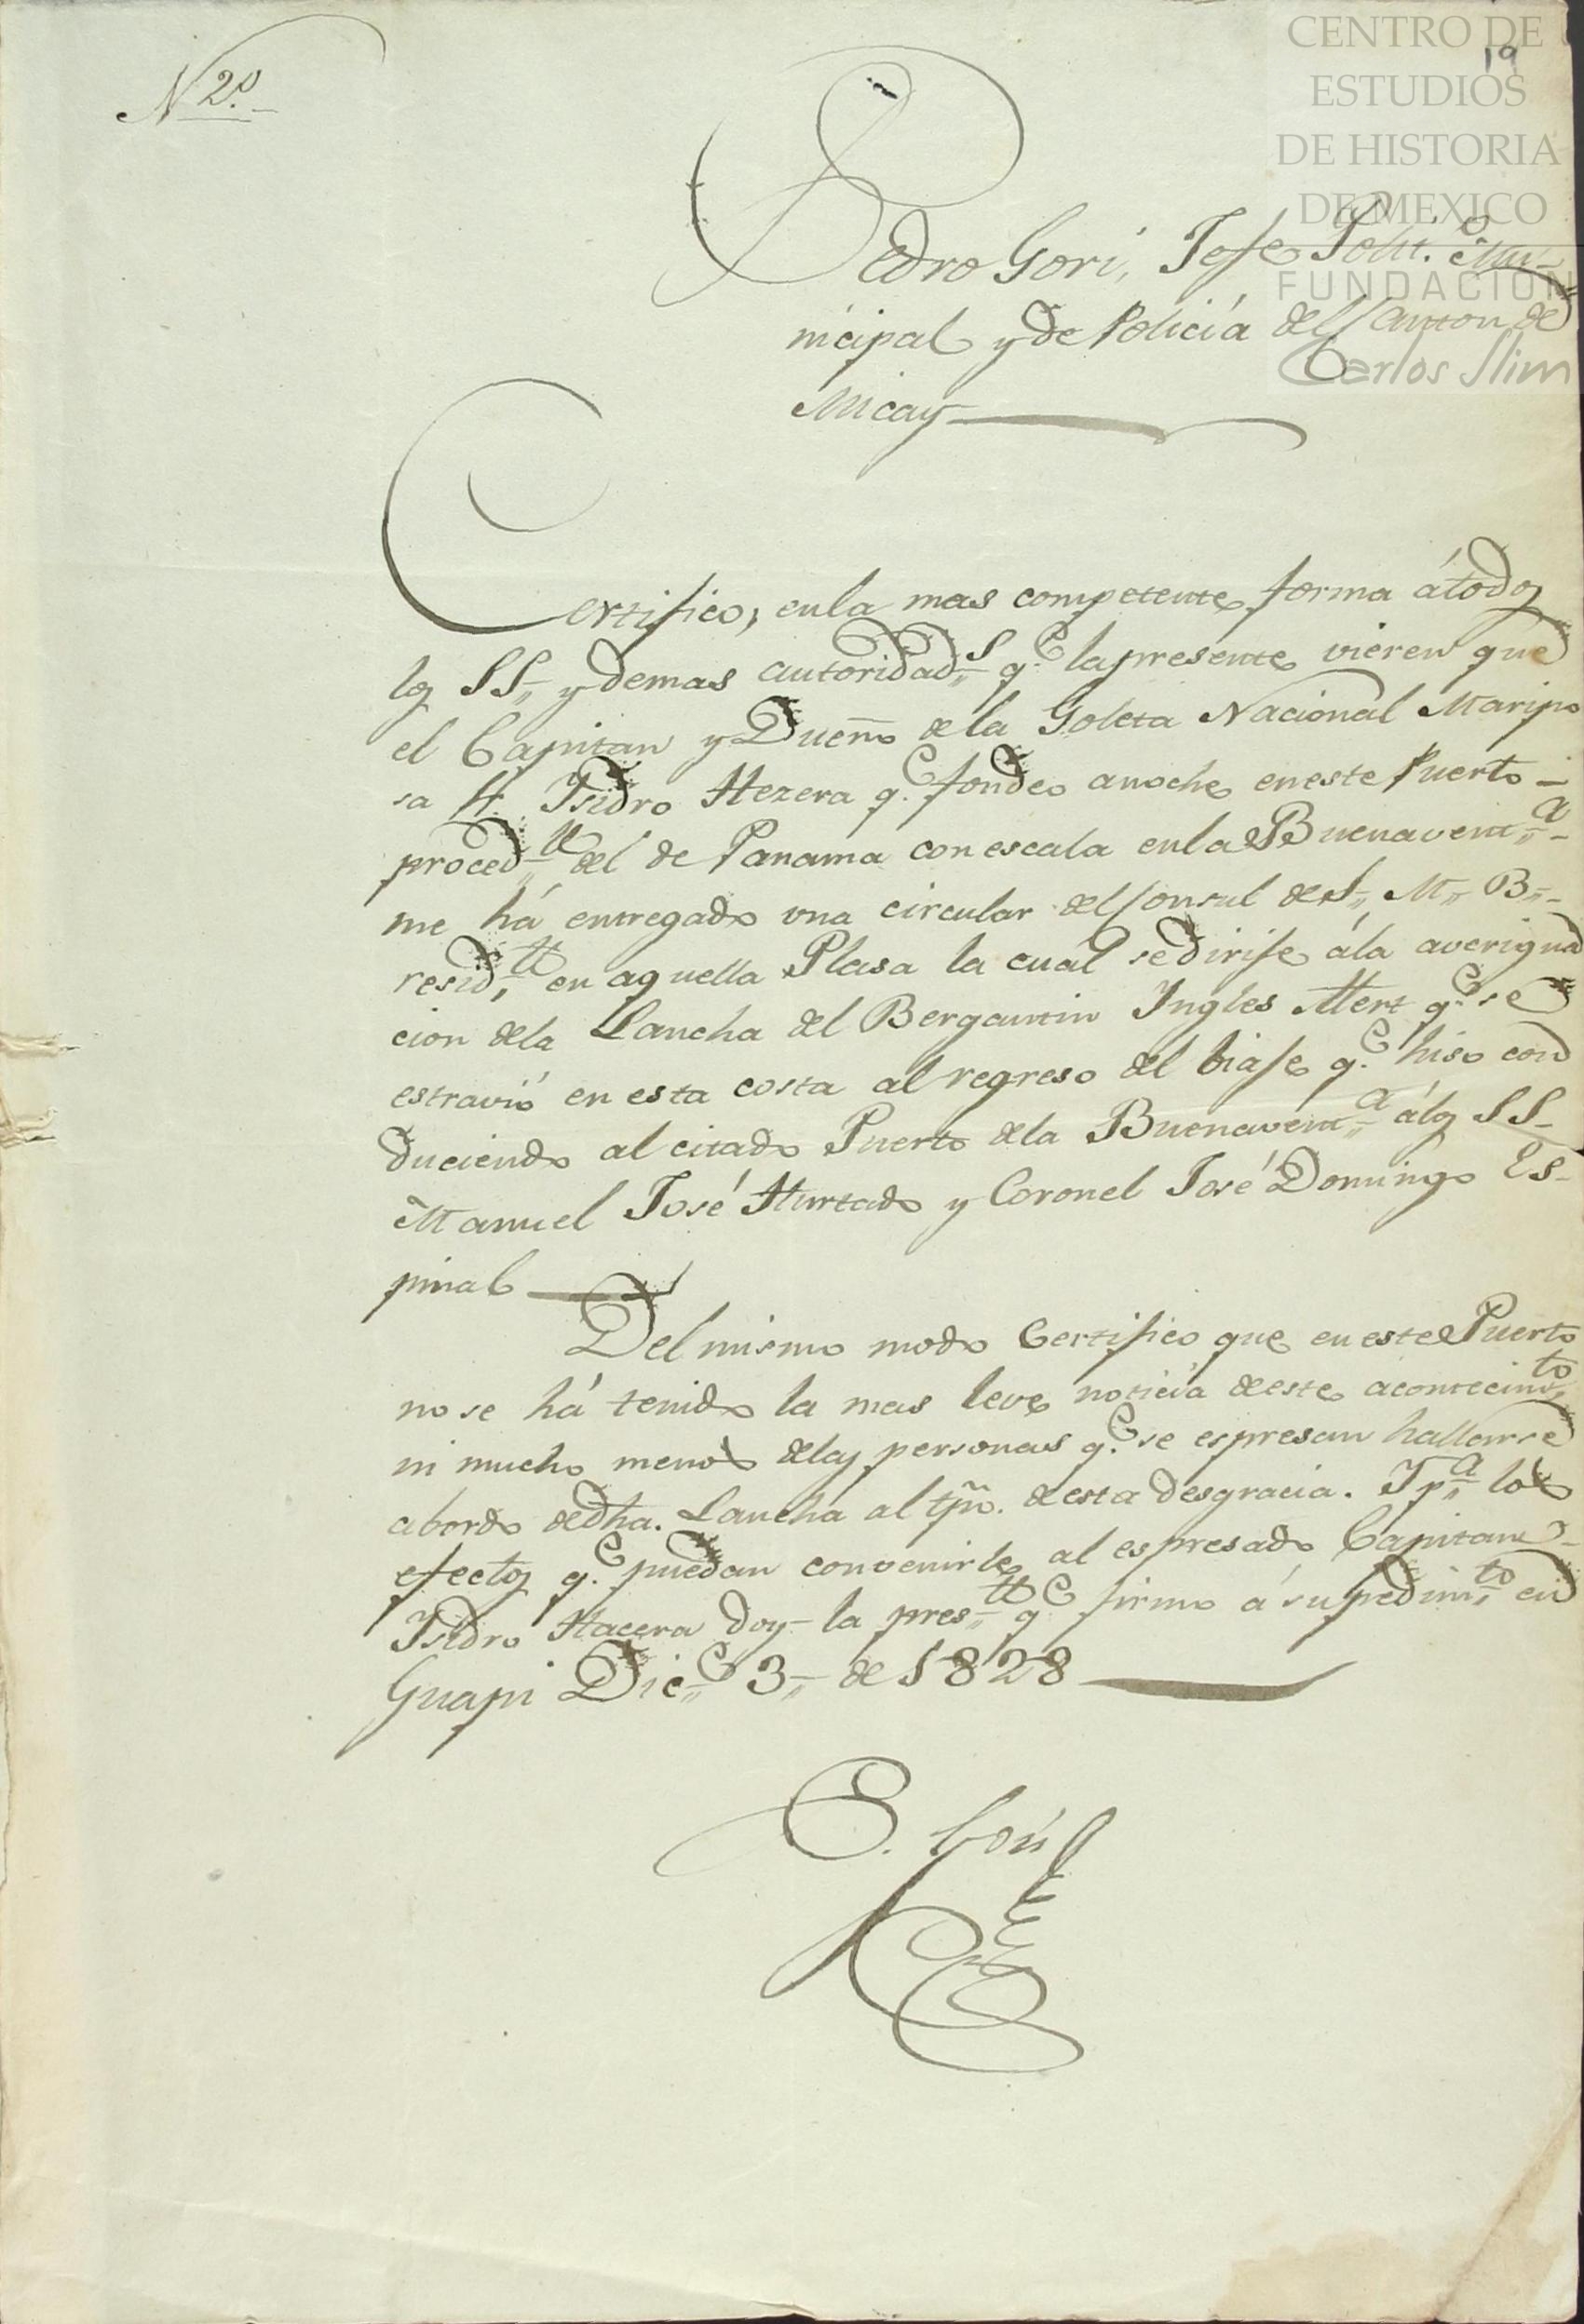 N 2º
19
CENTRO DE
ESTUDIOS
DE HISTORIA
DE MEXICO
FUNDACION
Carlos Slim
Pedro Gori, Jefe Polit.º Mu-
nicipal y de Policía del Canton de
Micay
Certifico, en la mas competente forma á todos
los SS. y demas autoridads. q.e la presente vieren que
el Capitan y Dueño de la Goleta Nacional Maripo
sa Isidro Hezera q.e fondeo anoche en este Puerto
proced.te del de Panama con escala en la Buenavent.a
me há entregado una circular del Consul de S. M. B.
resid.te en aquella Plasa la cual se dirije á la averigua
cion de la Lancha del Bergantin Ingles Alert q.e se
estravió en esta costa al regreso del biaje q.e hiso con
duciendo al citado Puerto de la Buenavent.a á los SS.
Manuel José Hurtado y Coronel José Domingo Es-
pinal
Del mismo modo Certifico que en este Puerto
no se há tenido la mas leve noticia de este acontecim.to
ni mucho menos de las personas q.e se espresan hallarse
abordo de dha. Lancha al tpõ. de esta desgracia. Y p.a los
efectos q.e puedan convenirle al espresado Capitan
Isidro Hacera doy la pres.te q.e firmo á su pedim.to en
Guapi Dic.e 3 de 1828
Gori